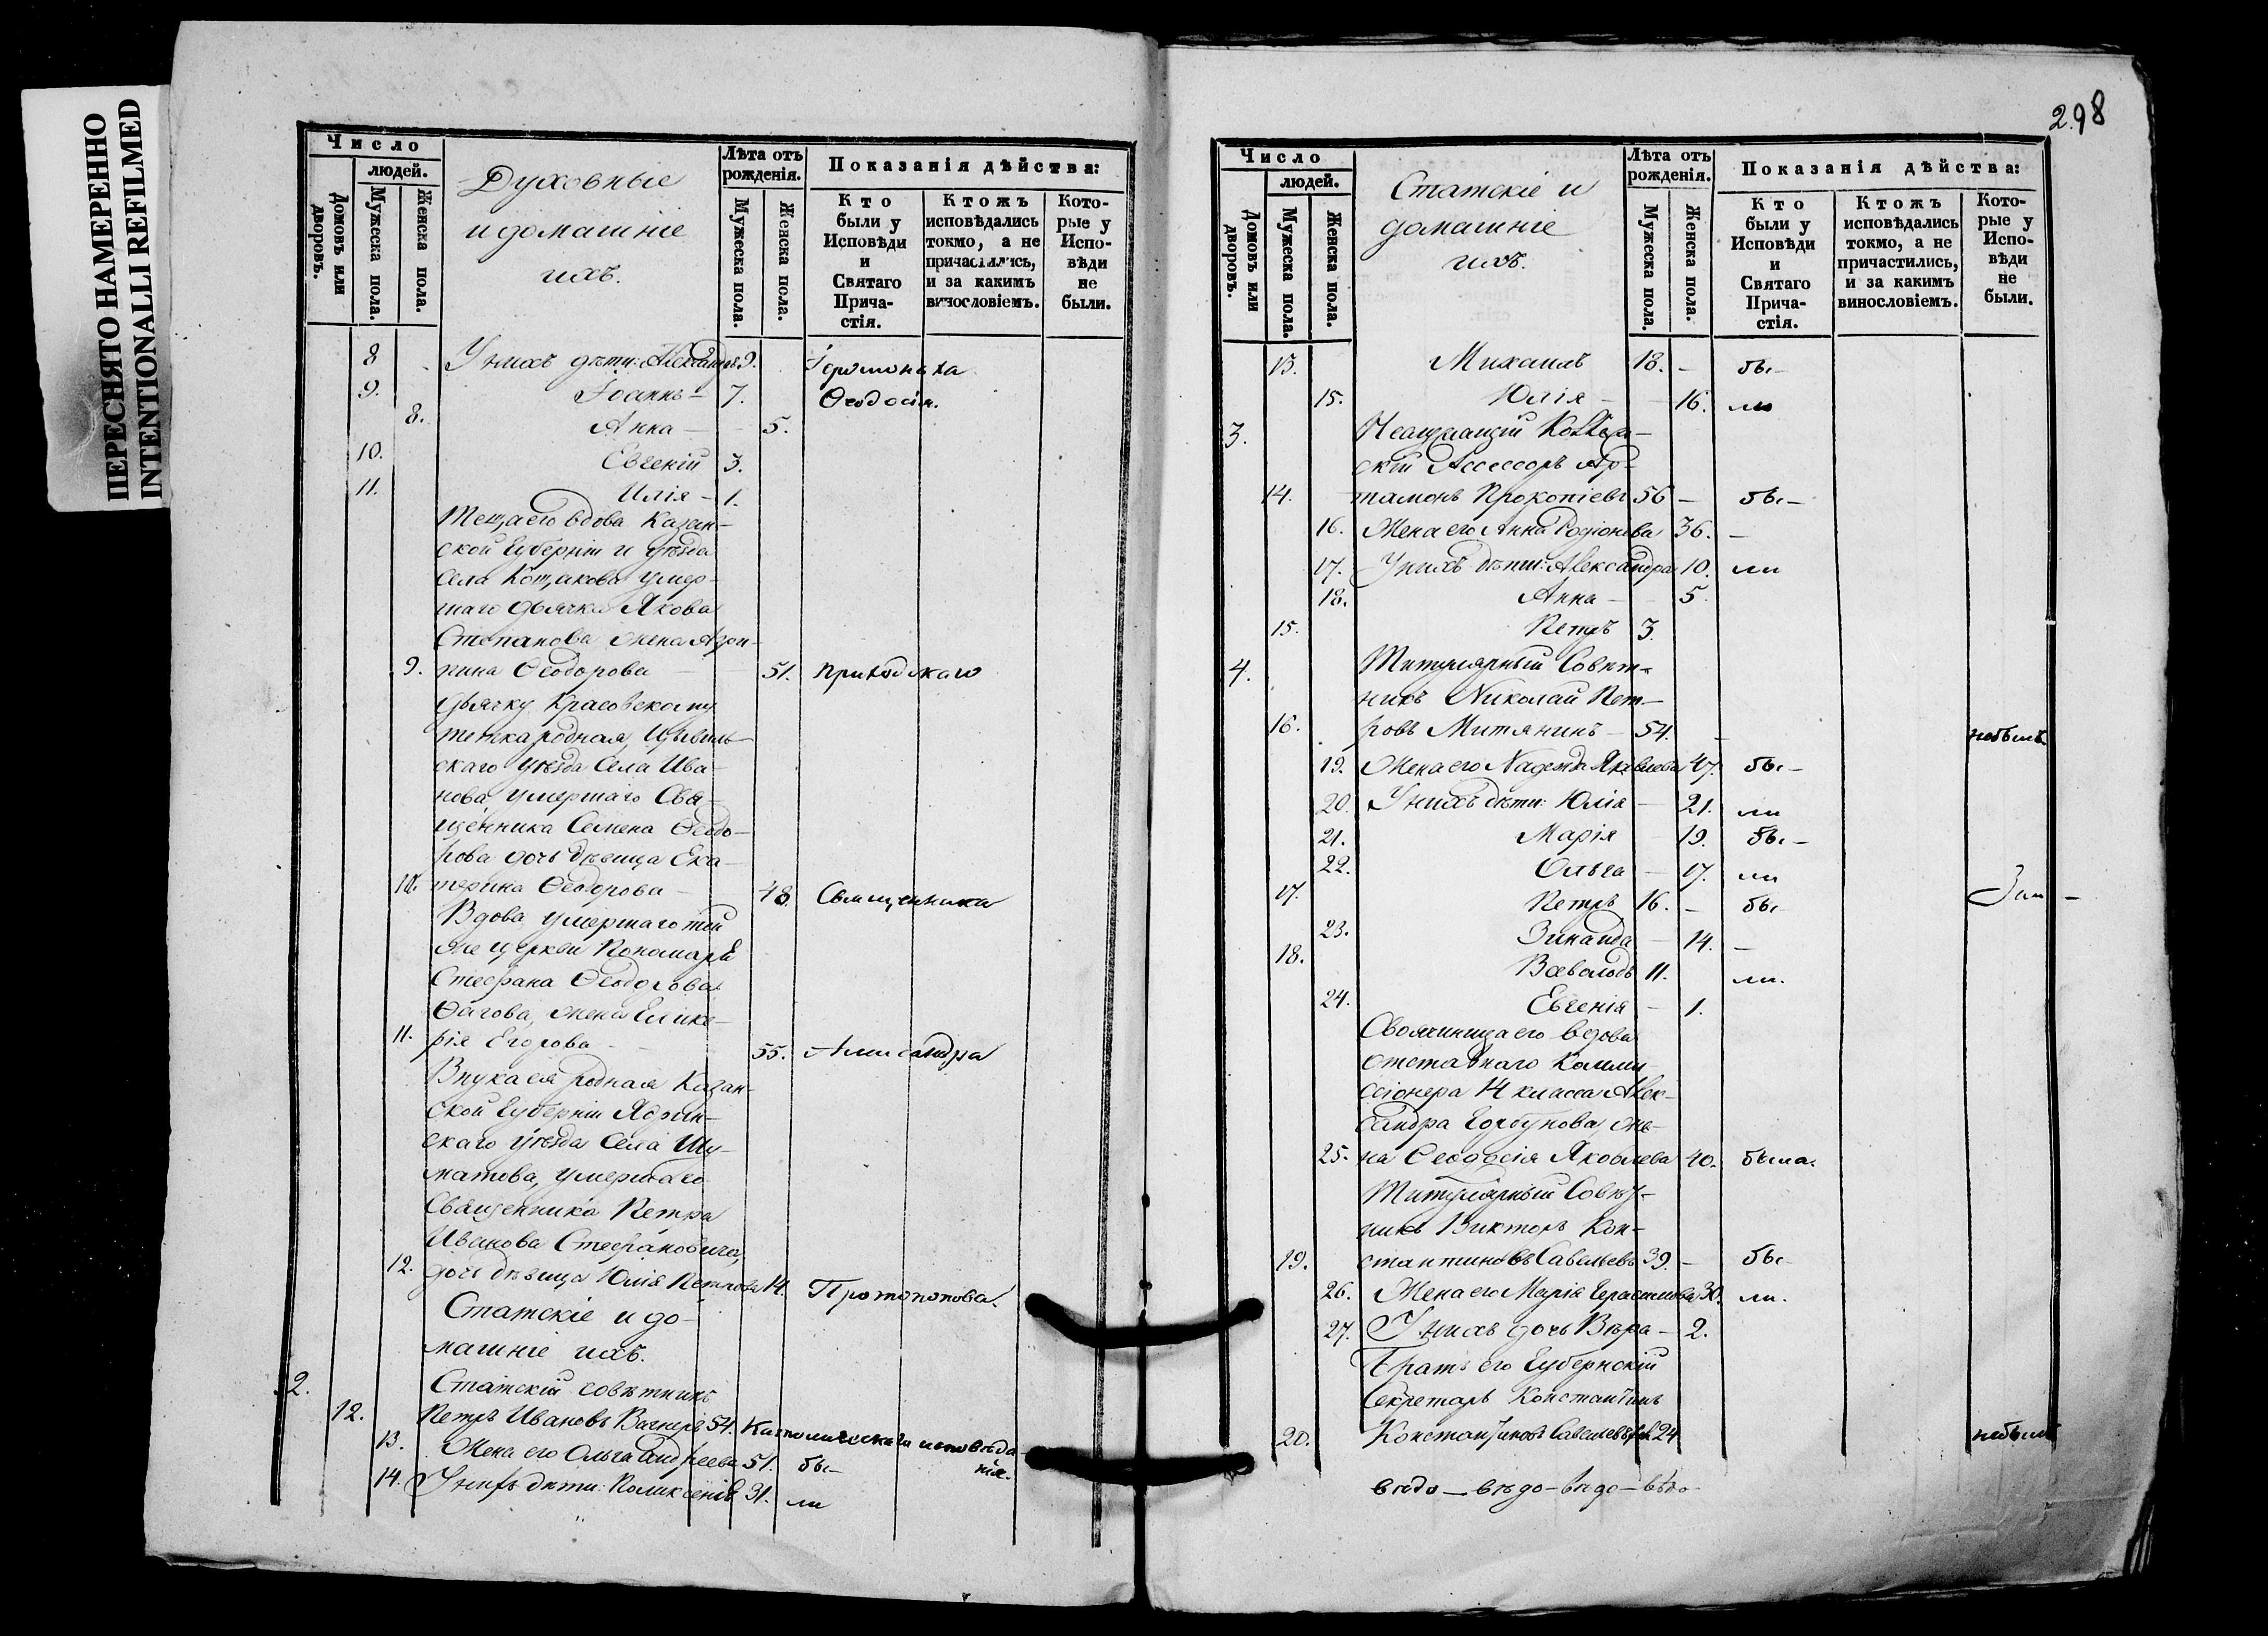 ПЕРЕСНЯТО НАМЕРЕННО
INTENTIONALLI REFILMED
Число
людей.
Домовъ или дворовъ.
Мужеска пола.
Женска пола.
Духовные
и домашніе
ихъ.
Лѣта отъ рожденія.
Мужеска пола.
Женска пола.
Показанія дѣйства:
Кто были у Исповѣди и Святаго Причастія.
Ктожъ исповѣдались токмо, а не причастились, и за какимъ винословіемъ.
Которые у Исповѣди не были.
8 У нихъ дѣти: Александръ 9. Іеромонаха
9. Іоаннъ – 7. Ѳеодосія.
8. Анна – 5.
10. Евгеній 3.
11. Илія – 1.
Теща его вдова Казан-
ской Губерніи и уѣзда
села Кощакова умер-
шаго дьячка Якова
Степанова жена Агри-
9. пина Ѳеодорова 51. Приходскаго
дьячку Красовскому
тетка родная, Цывиль-
скаго уѣзда Села Ива-
нова, умершаго Свя-
щенника Семена Ѳеодо-
рова дочь дѣвица Ека-
10. терина Ѳеодорова – 48. Священника
Вдова умершаго той
же церкви Пономаря
Стефана Ѳеодорова
жена Глике-
11. рія Егорова 55. Александра
Внука ея родная Казан-
ской Губерніи Ядрин-
скаго уѣзда Села Шу-
матова, умершаго
Священника Петра
Иванова Стефановича,
12. дочь дѣвица Юлія Петрова 14. Протопопова.
Статскіе и до-
машніе ихъ.
2. Статскій совѣтникъ
12. Петръ Ивановъ Вагнеръ 54. Католическаго исповѣда-
нія.
13. Жена его Ольга Андреева 51. бы-
14. У нихъ дѣти: Поликсенія 31. ли
298
Число
людей.
Домовъ или дворовъ.
Мужеска пола.
Женска пола.
Статскіе и
домашніе
ихъ.
Лѣта отъ рожденія.
Мужеска пола.
Женска пола.
Показанія дѣйства:
Кто были у Исповѣди и Святаго Причастія.
Ктожъ исповѣдались токмо, а не причастились, и за какимъ винословіемъ.
Которые у Исповѣди не были.
13. Михаилъ 18. – бы-
15. Юлія – 16. ли
3. Неслужащій Коллеж-
скій Ассессоръ Ар-
14. тамонъ Прокопіевъ 56 – бы-
16. Жена его Анна Родіонова 36. –
17. У нихъ дѣти: Александра 10. ли
18. Анна – 5.
15. Петръ 3.
4. Титулярный Совѣт-
никъ Николай Пет-
16. ровъ Митянинъ – 54. небылъ
19. Жена его Надежда Яковлева 47. бы-
20. У нихъ дѣти: Юлія – 21. ли
21. Марія 19. бы-
22. Ольга – 17. ли
17. Петръ 16. – бы-
23. Зинаида – 14. –
18. Всеволодъ 11. ли.
24. Евгенія – 1.
Своячиница его вдова
отставнаго Комми-
ссіонера 14 класса Алек-
сандра Горбунова, же-
25. на Ѳеодосія Яковлева 40. была.
Титулярный Совѣт-
никъ Викторъ Кон-
19. стантиновъ Савельевъ 39. – бы-
26. Жена его Марія Герасимова 30. ли.
27. У нихъ дочь Вѣра – 2.
Братъ его Губернскій
Секретарь Константинъ
20. Константиновъ Савельевъ 24 небылъ
вѣдо – вѣдо – вѣдо – вѣдо-